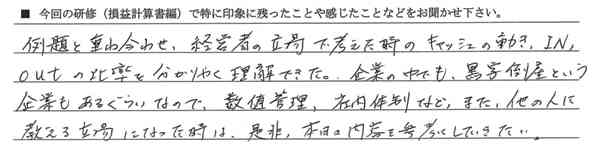 ■ 今回の研修（損益計算書編）で特に印象に残ったことや感じたことなどをお聞かせ下さい。
例題と重ね合わせ、経営者の立場で考えた時のキャッシュの動き、IN,
outの比率を分かりやく理解できた。企業の中でも、黒字倒産という
企業もあるぐらいなので、数値管理、社内体制など、また、他の人に
教える立場になった時は、是非、本日の内容を参考にしていきたい。